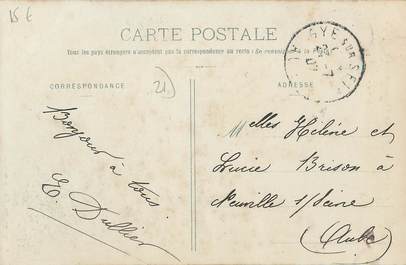 15 €
CARTE POSTALE
Tous les pays étrangers n'acceptent pas la correspondance au recto
GYE SUR SEINE
CORRESPONDANCE
21.
ADRESSE
Bonjour à tous.
E. Dullier
Melles Hélène et
Lucie Brison à
Neuville s/Seine
(Aube)